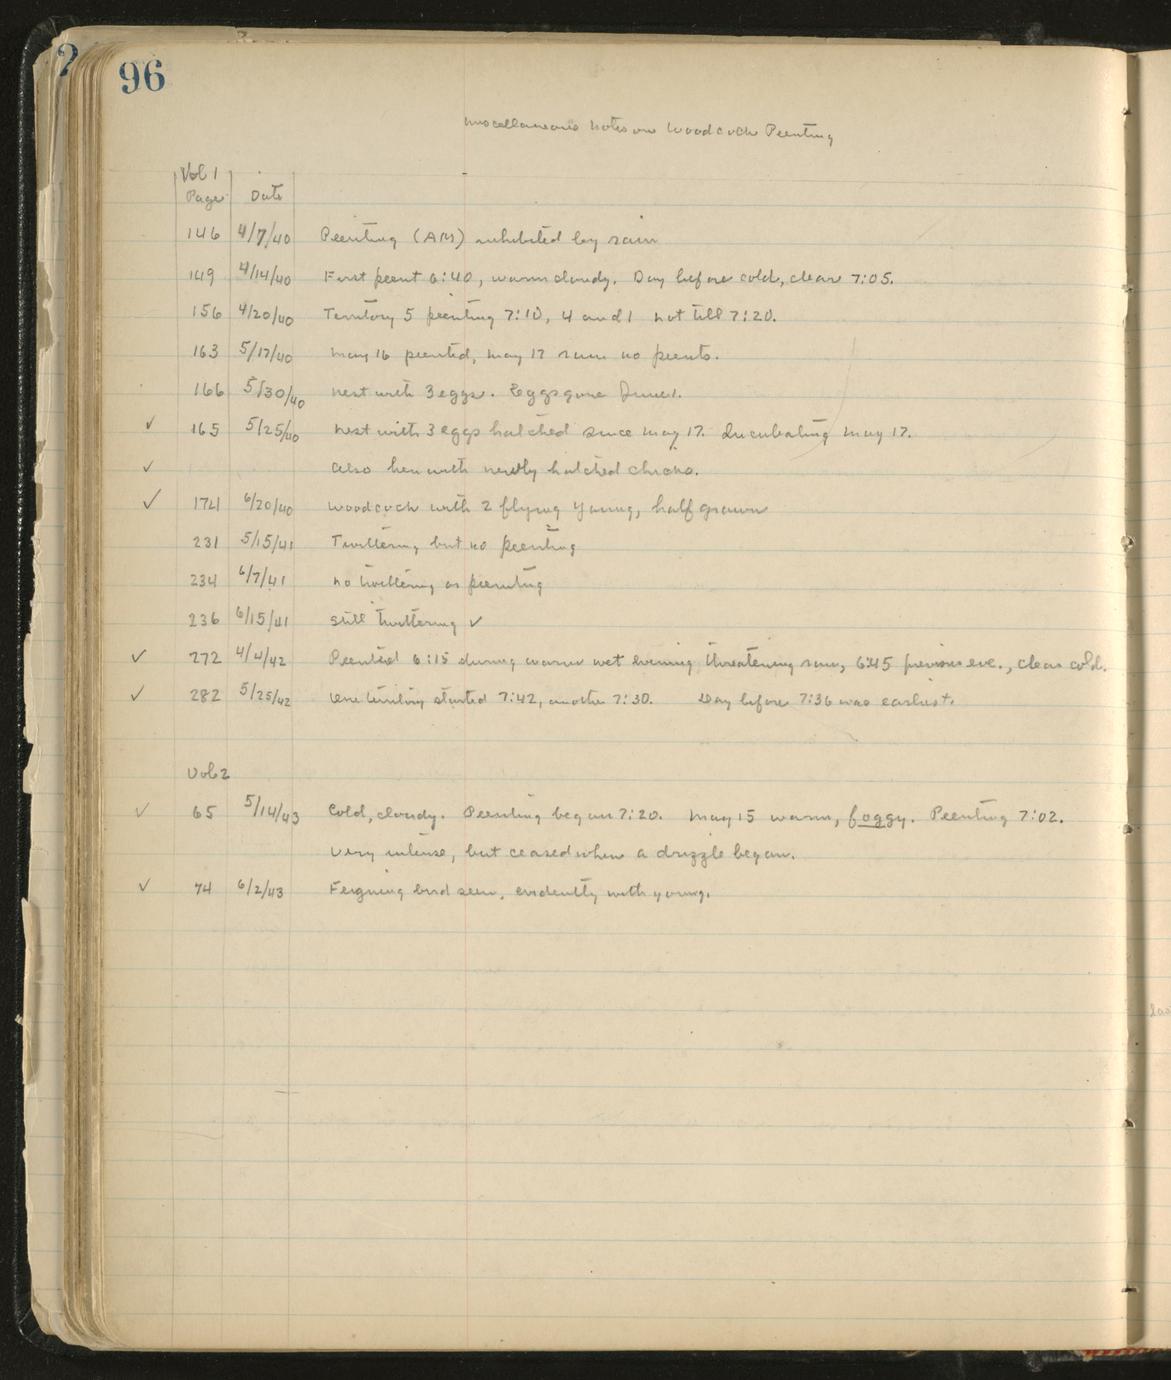 96
Miscellaneous Notes on Woodcock Peenting
Vol 1
Page Date
146 4/7/40 Peenting (AM) inhibited by rain
149 4/14/40 First peent 6:40, warm cloudy. Day before cold, clear 7:05.
156 4/20/40 Territory 5 peenting 7:10, 4 and 1 not till 7:20.
163 5/17/40 May 16 peented, May 17 rain no peents.
166 5/30/40 Nest with 3 eggs. Eggs gone June 1.
✓ 165 5/25/40 Nest with 3 eggs hatched since May 17. Incubating May 17.
✓ Also hen with newly hatched chicks.
✓ 174 6/20/40 Woodcock with 2 flying young, half grown
231 5/15/41 Twittering but no peenting
234 6/7/41 No twittering or peenting
236 6/15/41 Still twittering ✓
✓ 272 4/4/42 Peented 6:15 during warm wet evening threatening rain, 6:45 previous eve., clear cold.
✓ 282 5/25/42 One territory started 7:42, another 7:30. Day before 7:36 was earliest.
Vol 2
✓ 65 5/14/43 Cold, cloudy. Peenting began 7:20. May 15 warm, foggy. Peenting 7:02.
Very intense, but ceased when a drizzle began.
✓ 74 6/2/43 Feigning bird seen, evidently with young.